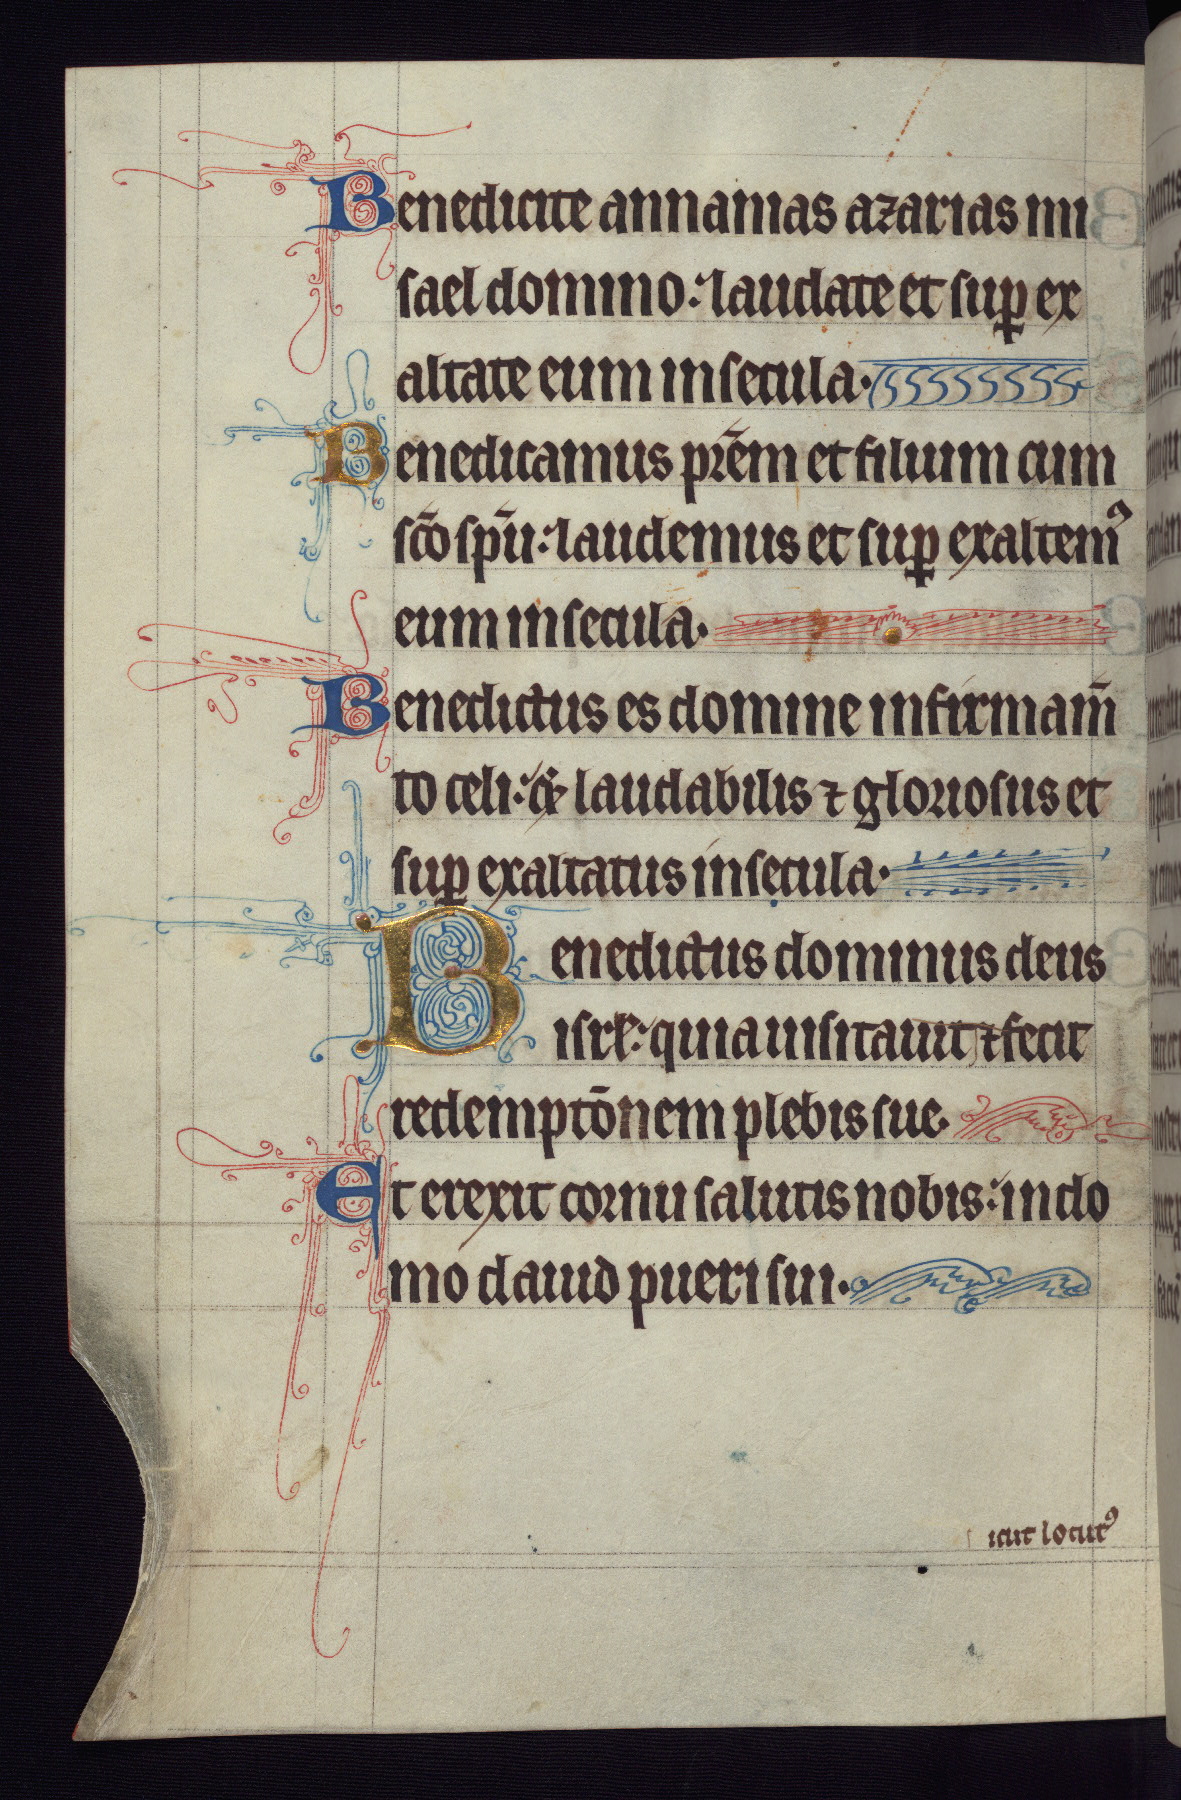 Benedicite annanias azarias mi
sael domino: laudate et suꝑ ex
altate eum in secula.
Benedicamus pr̄em et filium cum
sc̄o sp̄u: laudemus et suꝑ exaltemꝰ
eum in secula.
Benedictus es domine in firmam̄
to celi: ⁊ laudabilis ⁊ gloriosus et
suꝑ exaltatus in secula.
Benedictus dominus deus
isrł: quia uisitauit ⁊ fecit
redempto̅nem plebis sue.
Et erexit cornu salutis nobis: in do
mo dauid pueri sui.
icut locutꝰ